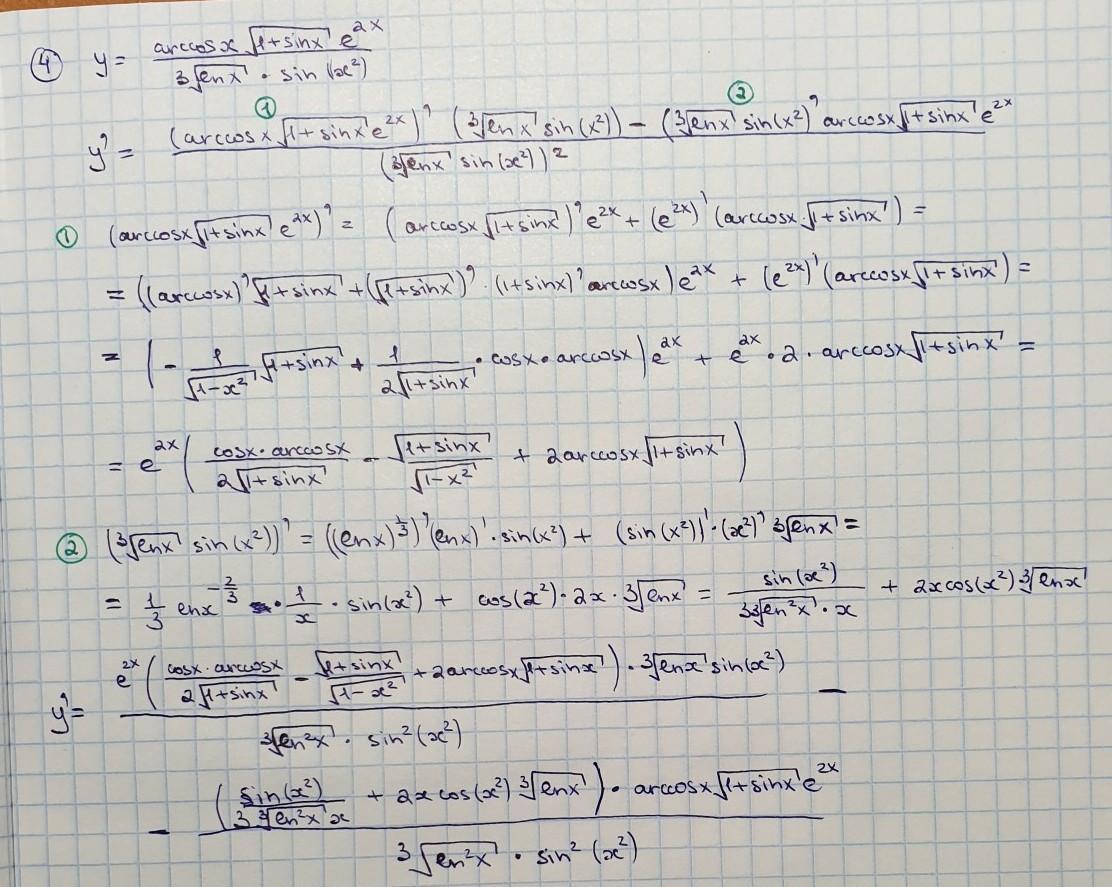 ④ y = \frac{arccos x \sqrt{1+sinx} e^{2x}}{\sqrt[3]{lnx} · sin(x²)}
① ②
y' = \frac{(arccosx \sqrt{1+sinx} e^{2x})' (\sqrt[3]{lnx} sin(x²)) - (\sqrt[3]{lnx} sin(x²)' arccosx \sqrt{1+sinx} e^{2x}}{(\sqrt[3]{lnx} sin(x²))²}
① (arccosx \sqrt{1+sinx} e^{2x})' = (arccosx \sqrt{1+sinx})' e^{2x} + (e^{2x})' (arccosx · \sqrt{1+sinx}) =
= ((arccosx)' \sqrt{1+sinx} + (\sqrt{1+sinx})' · (1+sinx)' arccosx) e^{2x} + (e^{2x})' (arccosx \sqrt{1+sinx}) =
= (-\frac{1}{\sqrt{1-x²}} \sqrt{1+sinx} + \frac{1}{2\sqrt{1+sinx}} · cosx · arccosx) e^{2x} + e^{2x} · 2 · arccosx \sqrt{1+sinx} =
= e^{2x} (\frac{cosx · arccosx}{2\sqrt{1+sinx}} - \frac{\sqrt{1+sinx}}{\sqrt{1-x²}} + 2arccosx \sqrt{1+sinx})
② (\sqrt[3]{lnx} sin(x²))' = ((lnx)^{\frac{1}{3}})' (lnx)' · sin(x²) + (sin(x²))' · (x²)' \sqrt[3]{lnx} =
= \frac{1}{3} lnx^{-\frac{2}{3}} · \frac{1}{x} · sin(x²) + cos(x²) · 2x · \sqrt[3]{lnx} = \frac{sin(x²)}{3\sqrt[3]{ln²x} · x} + 2x cos(x²) \sqrt[3]{lnx}
y' = \frac{e^{2x} (\frac{cosx · arccosx}{2\sqrt{1+sinx}} - \frac{\sqrt{1+sinx}}{\sqrt{1-x²}} + 2arccosx \sqrt{1+sinx}) · \sqrt[3]{lnx} sin(x²)}{\sqrt[3]{ln²x} · sin²(x²)} -
- \frac{(\frac{sin(x²)}{3\sqrt[3]{ln²x} x} + 2x cos(x²) \sqrt[3]{lnx}) · arccosx \sqrt{1+sinx} e^{2x}}{\sqrt[3]{ln²x} · sin²(x²)}